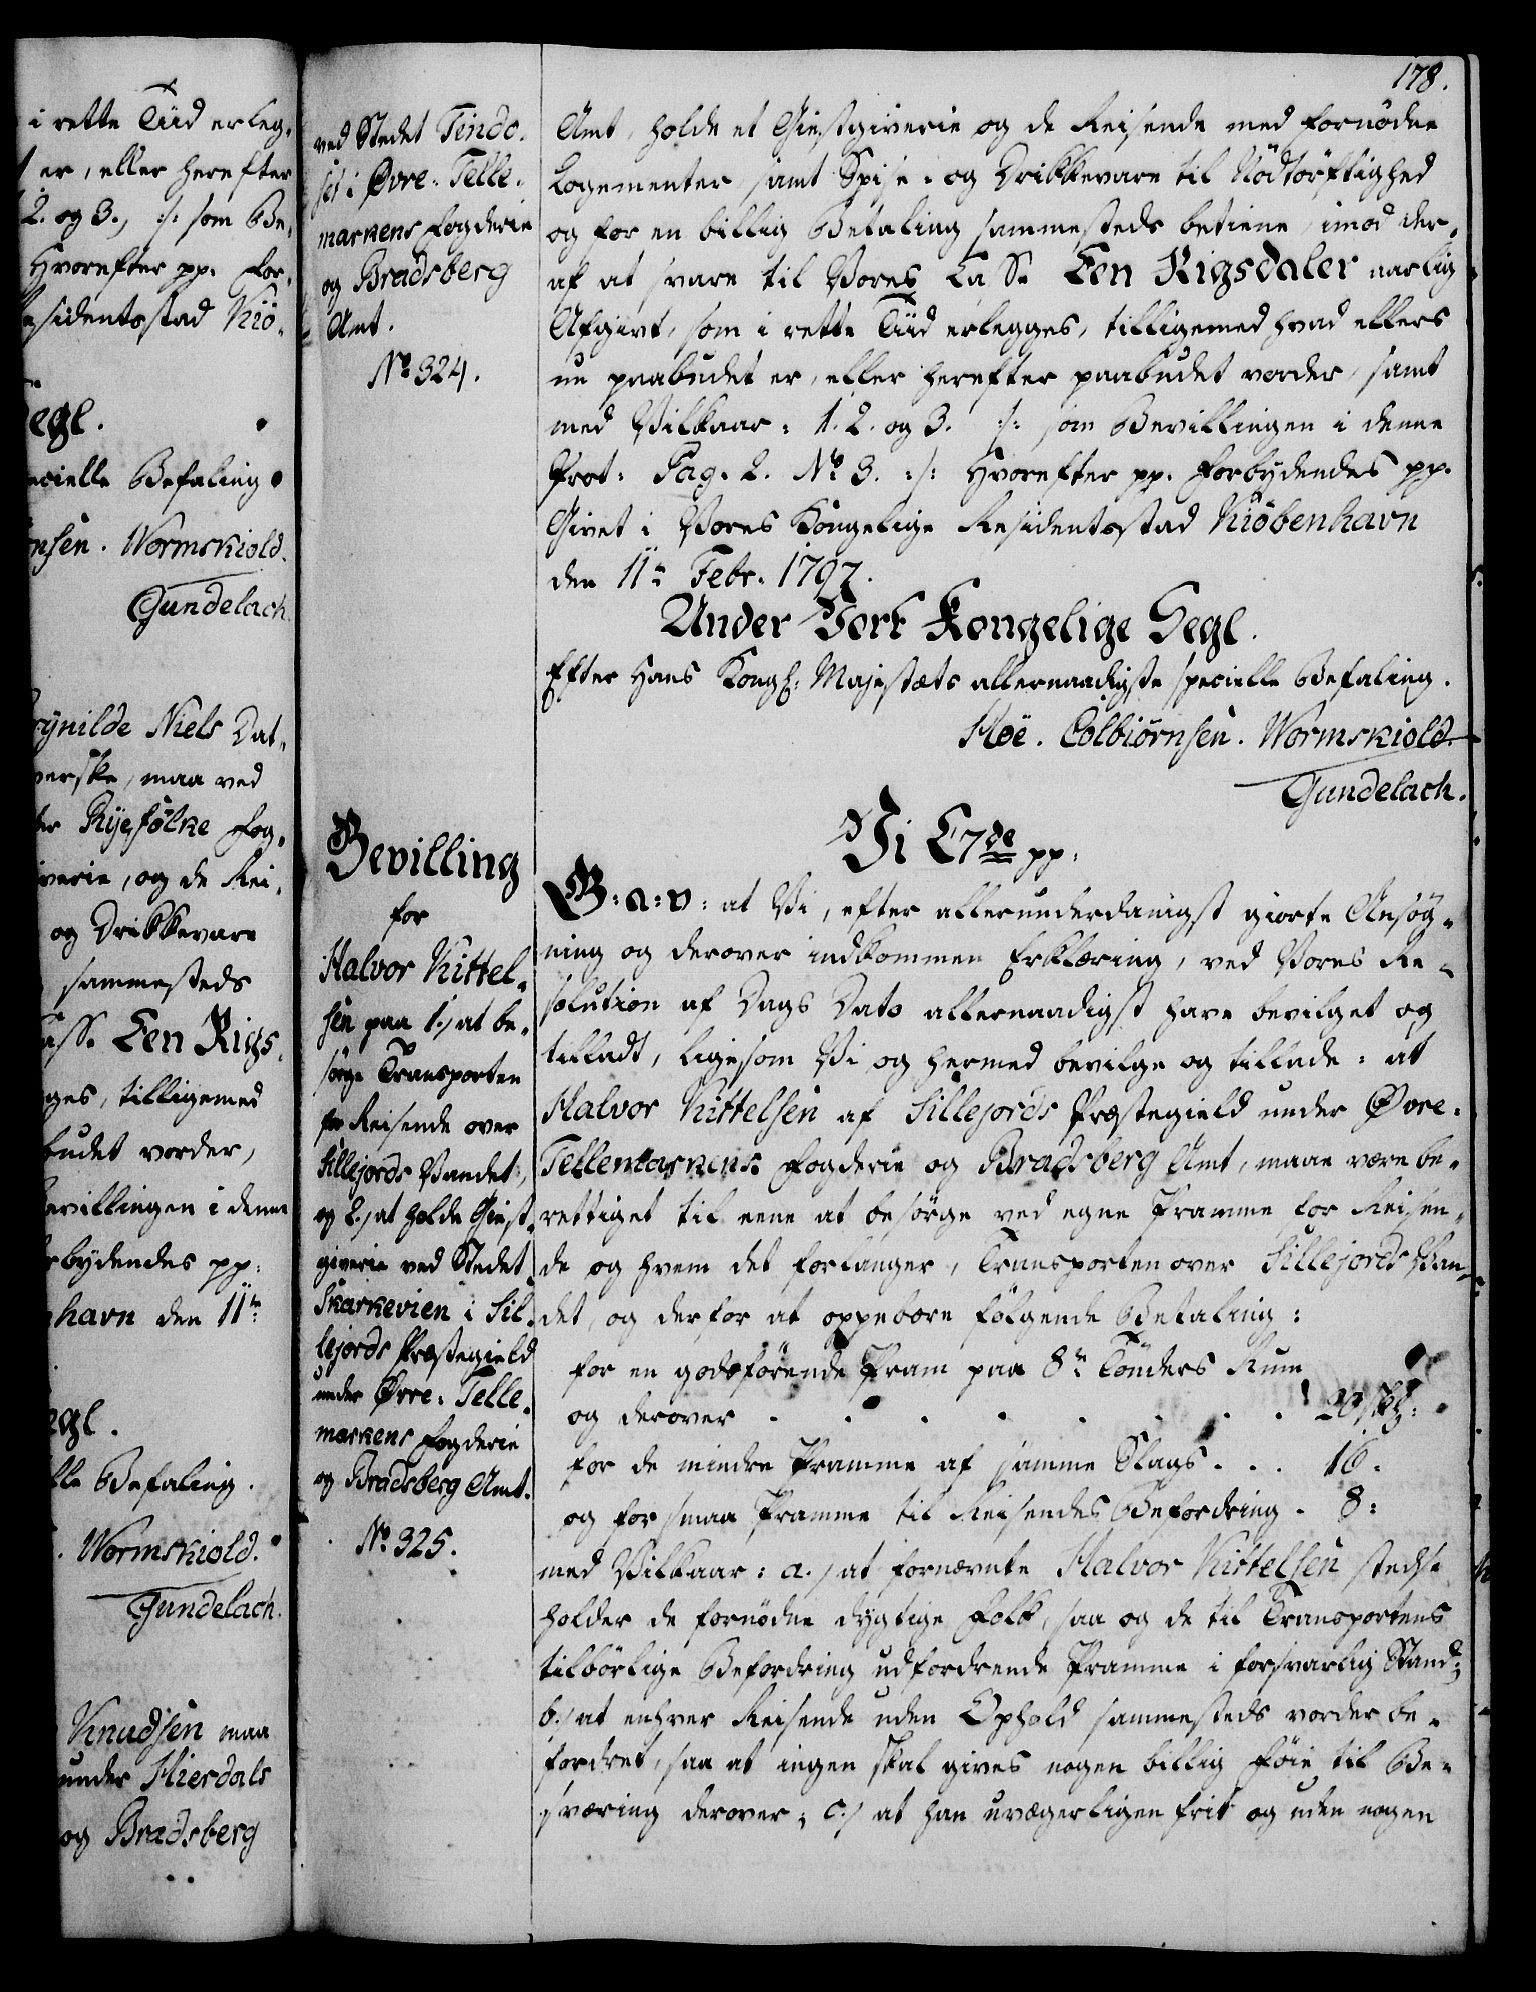 i rette Tiid erleg-
er, eller herefter
2. og 3., :/: som Be-
Hvorefter pp. For-
esidentsstad Kiö-
egl.
ecielle Befaling
nsen. Wormskiold.
Gundelach.
rynilde Niels Dat-
verske, maa ved
ter Ryefölke Fog-
iverie, og de Rei-
og Drikkevare
sammesteds
Casse Een Rigs-
ges, tilligemed
budet vorder,
evillingen i denne
rbydendes pp:
havn den 11te
egl.
lle Befaling.
Wormskiold.
Gundelach.
Knudsen maa
under Hierdals
og Bradsberg
178.
ved Stedet Tindo-
set i Øvre-Telle-
markens Fogderie
og Bradsberg
Amt.
No 324.
Amt, holde et Giestgiverie og de Reisende med fornödne
Logementer, samt Spise- og Drikkevare til Nödtörftighed
og for en billig Betaling sammesteds betiene, imod der-
af at svare til Vores Casse Een Rigsdaler aarlig
Afgivt, som i rette Tiid erlegges, tilligemed hvad ellers
nu paabudet er, eller herefter paabudet vorder, samt
med Vilkaar: 1. 2. og 3. :/: som Bevillingen i denne
Prot: Pag. 2. No 3. :/: Hvorefter pp. Forbydendes pp.
Givet i Vores Kongelige Residentsstad Kiöbenhavn
den 11te Febr. 1797.
Under Vort Kongelige Segl.
Efter Hans Kongl: Majestæts allernaadigste specielle Befaling.
Høe. Colbiørnsen. Wormskiold.
Gundelach.
Bevilling
for
Halvor Kittel-
sen paa 1.) at be-
sörge Transporten
for Reisende over
Sillejords Vandet,
og 2.) at holde Giest-
giverie ved Stedet
Skarkevien i Sil-
lejords Præstegield
under Øvre-Telle-
markens Fogderie
og Bradsberg Amt.
No 325.
Vi C7de pp:
G: a: v: at Vi, efter allerunderdanigst giorte Ansög-
ning og derover indkommen Erklæring, ved Vores Re-
solution af Dags Dato allernaadigst have bevilget og
tilladt, ligesom Vi og hermed bevilge og tillade: at
Halvor Kittelsen af Sillejords Præstegield under Øvre-
Tellemarkens Fogderie og Bradsberg Amt, maae være be-
rettiget til eene at besörge ved egne Pramme for Reisen-
de og hvem det forlanger, Transporten over Sillejords Van-
det, og derfor at oppebære fölgende Betaling:
for en godsförende Pram paa 8te Tönders Rum
og derover . . . . . . . . 20 skl:
for de mindre Pramme af samme Slags . . . 16.
og for smaa Pramme til Reisendes Befordring . 8:
med Vilkaar: a.) at fornævnte Halvor Kittelsen stedse
holder de fornödne dygtige Folk, saa og de til Transportens
tilbörlige Befordring udfordrende Pramme i forsvarlig Stand;
b.) at enhver Reisende uden Ophold sammesteds vorder be-
fordret, saa at ingen skal gives nogen billig Föie til Be-
sværing derover; c.) at han uvægerligen frit og uden nogen